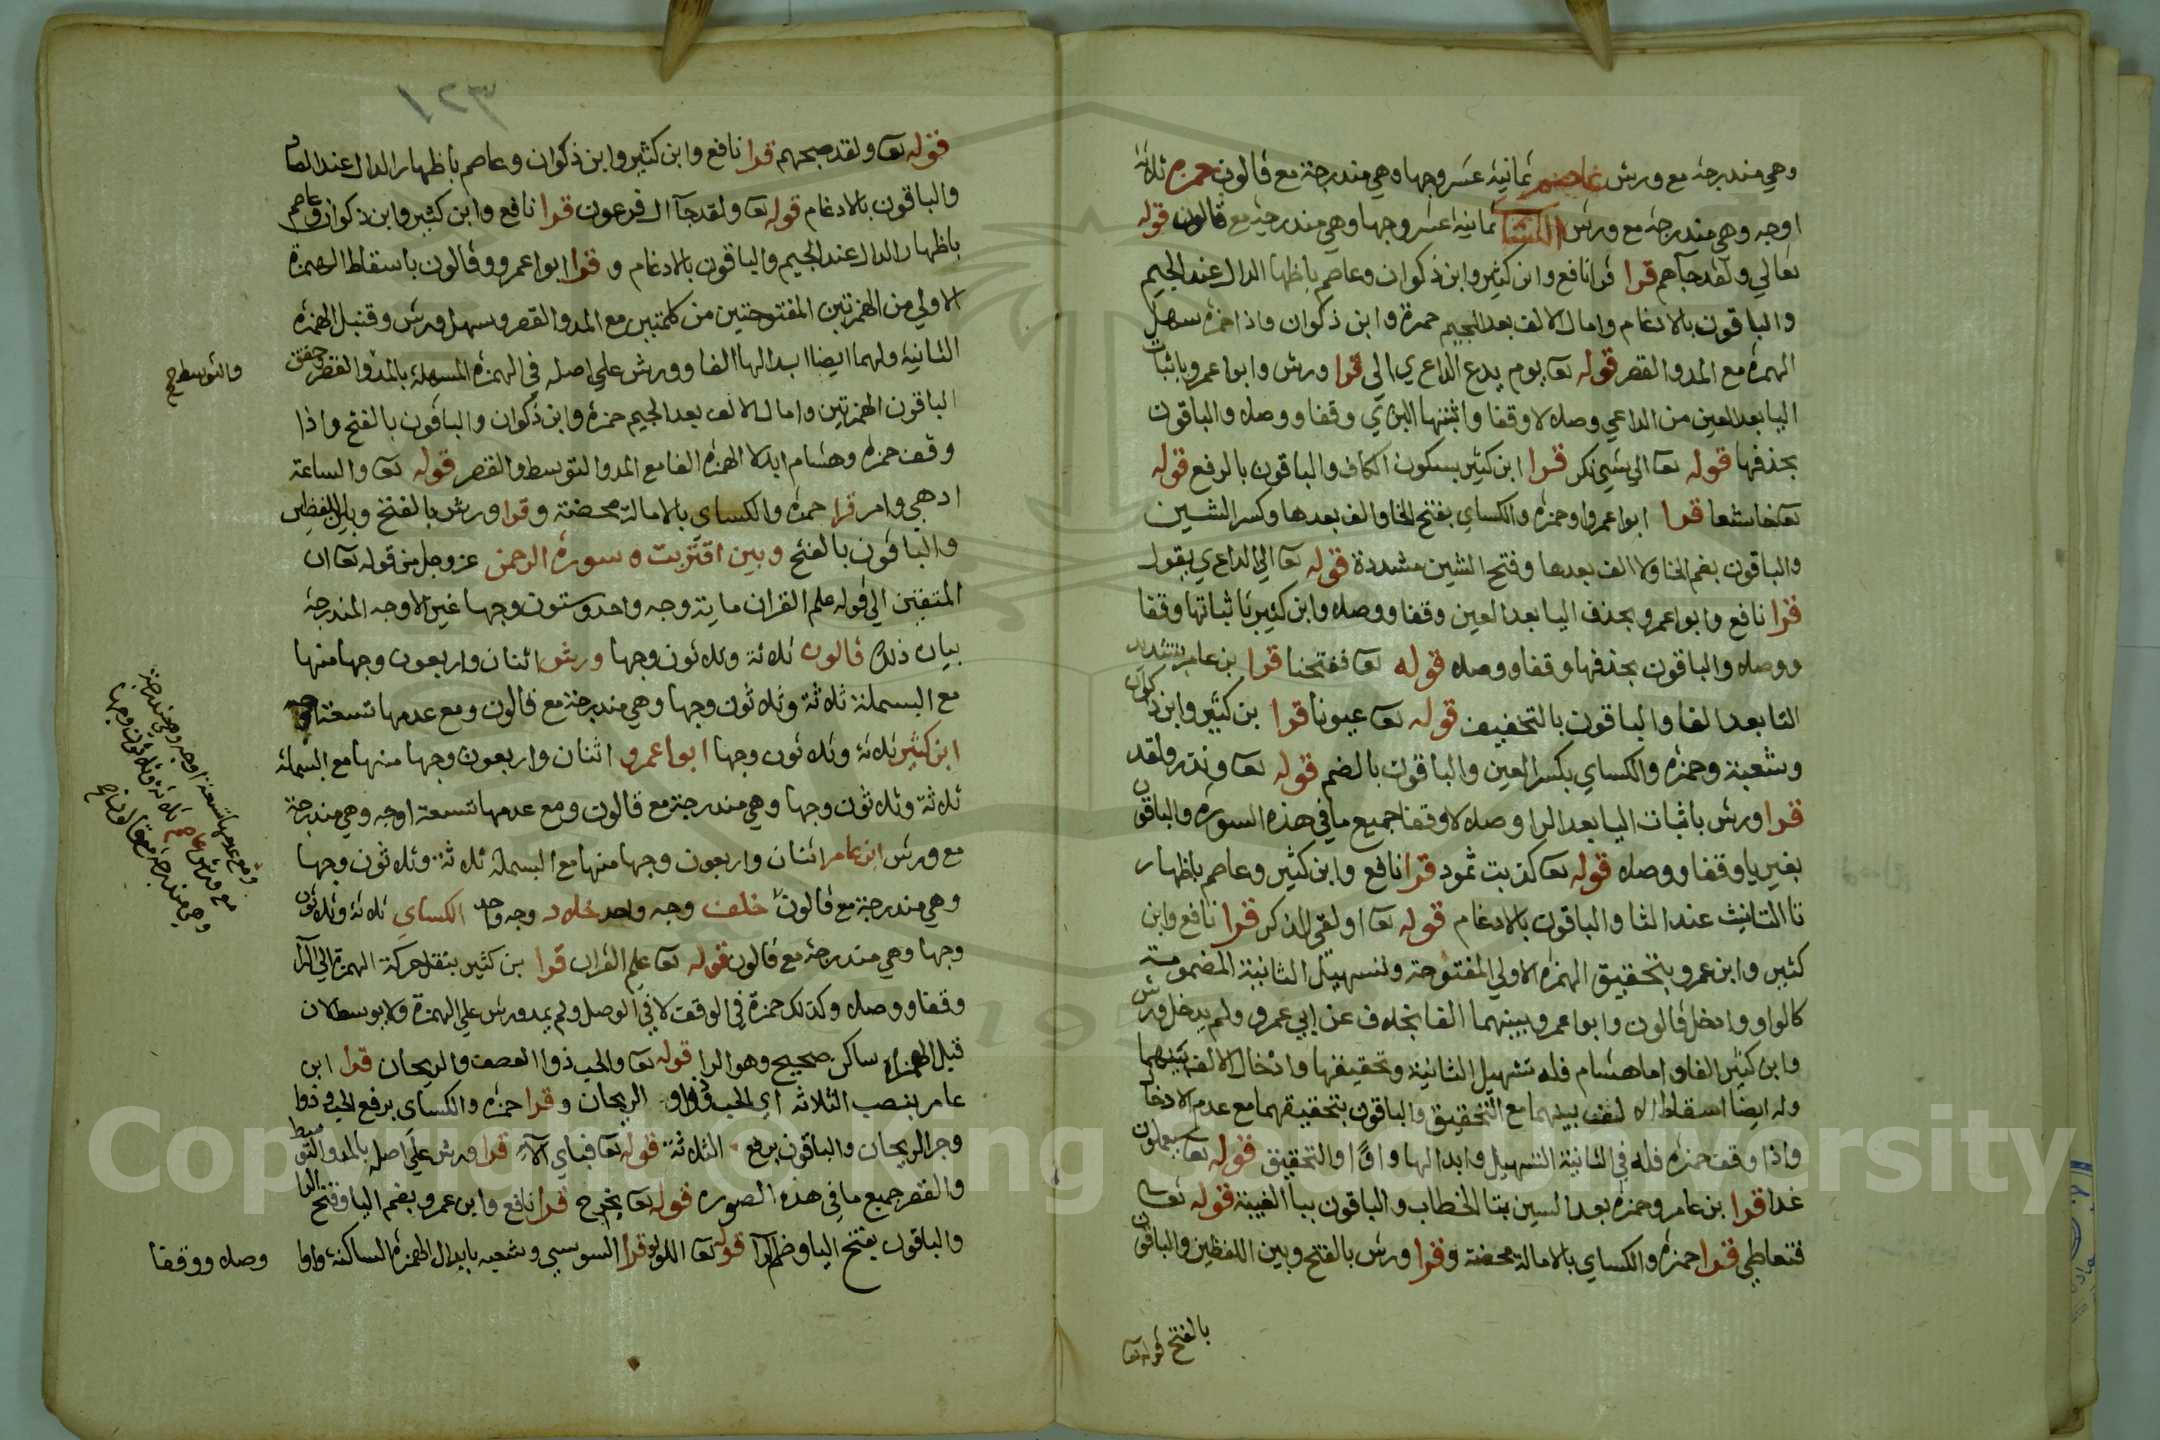 وهي مندرجة مع ورش عاصم ثمانية عشر وجها وهي مندرجة مع قالون حمزه ثلاثة
اوجه وهي مندرجة مع ورش الكسا ثمانية عشر وجها وهي مندرجة مع قالون قوله
تعالي ولقد جآهم قرا قرا نافع وابن كثير وابن ذكوان وعاصم باظها الدال عند الجيم
والباقون بالادغام وامال الالف بعد الجيم حمزة وابن ذكوان واذا حمزه سهل
الهمزه مع المد والقصر قوله تعا يوم يدع الداع ي الي قرا ورش وابوا عمرو باثبات
اليا بعد العين من الداعي وصلا لا وقفا واثبتها البزي وقفا ووصلا والباقون
بحذفها قوله تعا الي شي نكر قرا ابن كثير بسكون الكاف والباقون بالرفع قوله
تعا خاشعا قرا ابوا عمرو وحمزه والكساي بفتح الخا والف بعدها وكسر الشين
والباقون بضم الخا ولا الف بعدها وفتح الشين مشددة قوله تعا الي الداع ي يقول
قرا نافع وابوا عمرو بحذف اليا بعد العين وقفا ووصلا وابن كثير باثباتها وقفا
ووصلا والباقون بحذفها وقفا ووصلا قوله تعا ففتحنا قرا بن عامر بتشديد
التا بعد الفا والباقون بالتخفيف قوله تعا عيونا قرا بن كثير وابن ذكوان
وشعبة وحمزه والكساي بكسر العين والباقون بالضم قوله تعا ونذر ولقد
قرا ورش باثبات اليا بعد الرا وصلا لا وقفا جميع ما في هذه السوره والباقون
بغير يا وقفا ووصلا قوله تعا كذبت ثمود قرا نافع وابن كثير وعاصم باظهار
تا التانيث عند الثا والباقون بالادغام قوله تعا اولقي الذكر قرا نافع وابن
كثير وابن عمرو بتحقيق الهمزه الاولي المفتوحة وتسهيل الثانية المضمومة
كالواو وادخل قالون وابوا عمرو بينهما الفا بخلاف عن ابي عمرو ولم يدخل ورش
وابن كثير الفا واما هشام فله تسهيل الثانية وتحقيقها وادخال الالف بينهما
وله ايضا اسقاط الالف بينهما مع التحقيق والباقون بتحقيقهما مع عدم الادخا
واذا وقف حمزه فله في الثانية التسهيل وابدالها واوا والتحقيق قوله تعا سيعلمون
غدا قرا بن عامر وحمزه بعد السين بتا الخطاب والباقون بيا الغيبة قوله تعا
فتعاطي قرا حمزه والكساي بالامالة محضة وقرا ورش بالفتح وبين اللفظين والباقون
بالفتح قوله تعا
٣٢١
قوله تعا ولقد صبحهم قرا نافع وابن كثير وابن ذكوان وعاصم باظهار الدال عند الصاد
والباقون بالادغام قوله تعا ولقد جآ ال فرعون قرا نافع وابن كثير وابن ذكوان وعاصم
باظهار الدال عند الجيم والباقون بالادغام و قرا ابوا عمرو وقالون باسقاط الهمزة
الاولي من الهمزتين المفتوحتين من كلمتين مع المد والقصر وسهل ورش وقنبل الهمزه
الثانية ولهما ايضا ابدالها الفا وورش علي اصله في الهمزه المسهلة بالمد والقصر وحقق
والتوسط صح
الباقون الهمزتين وامال الالف بعد الجيم حمزه وابن ذكوان والباقون بالفتح واذا
وقف حمزه وهشام ابدلا الهمزه الفا مع المد والتوسط والقصر قوله تعا والساعة
ادهي وامر قرا حمزه والكساي بالامالة محضة وقرا ورش بالفتح وبين اللفظين
والباقون بالفتح وبين اقتربت وسورة الرحمن عز وجل من قوله تعا ان
المتقين الي قوله علم القران ماية وجه واحد وستون وجها غير الاوجه المندرجة
بيان ذلك قالون ثلاثة وثلاثون وجها ورش اثنان واربعون وجها منها
مع البسملة ثلاثة وثلاثون وجها وهي مندرجة مع قالون ومع عدمها تسعة اوجه
ابن كثير ثلاثة وثلاثون وجها ابوا عمرو اثنان واربعون وجها منها مع البسملة
ثلاثة وثلاثون وجها وهي مندرجة مع قالون ومع عدمها تسعة اوجه وهي مندرجة
مع ورش ابن عامر اثنان واربعون وجها منها مع البسملة ثلاثة وثلاثون وجها
وهي مندرجة مع قالون خلف وجه واحد خلاد وجه واحد الكساي ثلاثة وثلاثون
ومع عدمها تسعة اوجه وهي مندرجة
مع ورش عاصم ثلاثة وثلاثون وجها
وهي مندرجة مع قالون صح
وجها وهي مندرجة مع قالون قوله تعا علم القران قرا بن كثير بنقل حركة الهمزة الي الرا
وقفا ووصلا وكذلك حمزة في الوقف لا في الوصل ولم يمد ورش علي الهمزة ولا يوسط لان
قبل الهمزه ساكن صحيح وهو الرا قوله تعا والحب ذوا العصف والريحان قرا ابن
عامر بنصب الثلاثه اي الحب وذا والريحان وقرا حمزه والكساي برفع الحب وذوا
وجر الريحان والباقون برفع الثلاثة قوله تعا فباي الآء قرا ورش علي اصله بالمد والتوسط
والقصر جميع ما في هذه الصوره قوله تعا يخرج قرا نافع وابن عمرو بضم اليا وفتح الرا
والباقون بفتح اليا وضم الرا قوله تعا اللولو قرا السوسي وشعبه بابدال الهمزه الساكنة واوا
وصلا ووقفا
Copyright © King Saud University